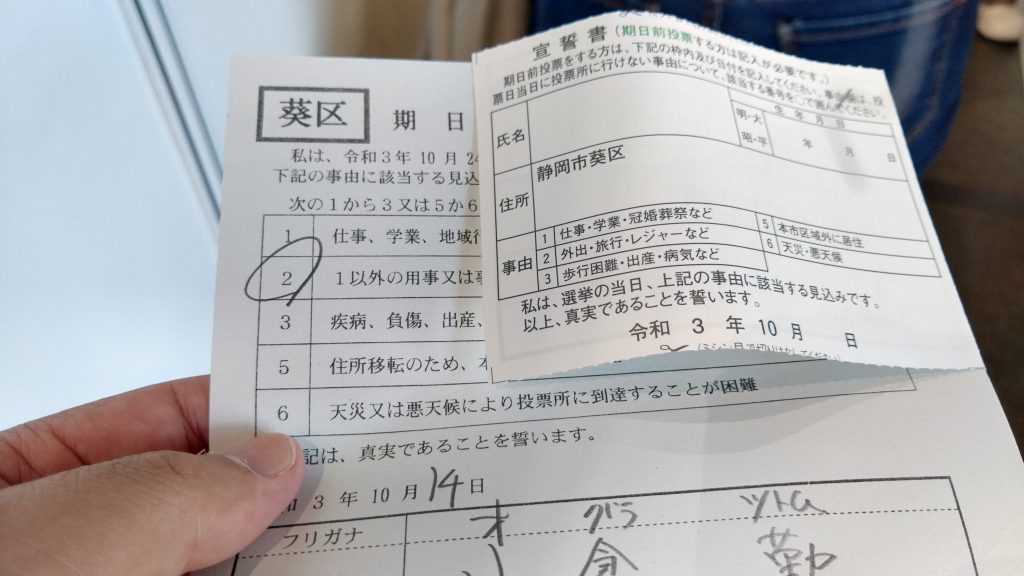 葵区
期日
私は、令和3年10月24
下記の事由に該当する見込
次の1から3又は5か6
1 仕事、学業、地域行
2 1以外の用事又は事
3 疾病、負傷、出産、
5 住所移転のため、本
6 天災又は悪天候により投票所に到達することが困難
記は、真実であることを誓います。
3年10月14日
フリガナ オグラ ツトム
倉 勤
宣誓書(期日前投票する方は記入が必要です。)
期日前投票をする方は、下記の枠内及び日付を記入してください。事由は、投
票日当日に投票所に行けない事由について、該当する番号を○で囲んでください。
氏名
生年月日
明・大
昭・平
年 月 日
住所
静岡市葵区
事由
1 仕事・学業・冠婚葬祭など
2 外出・旅行・レジャーなど
3 歩行困難・出産・病気など
5 本市区域外に居住
6 天災・悪天候
私は、選挙の当日、上記の事由に該当する見込みです。
以上、真実であることを誓います。
令和 3 年 10 月 日
(ミシン目で切りはなしてください)